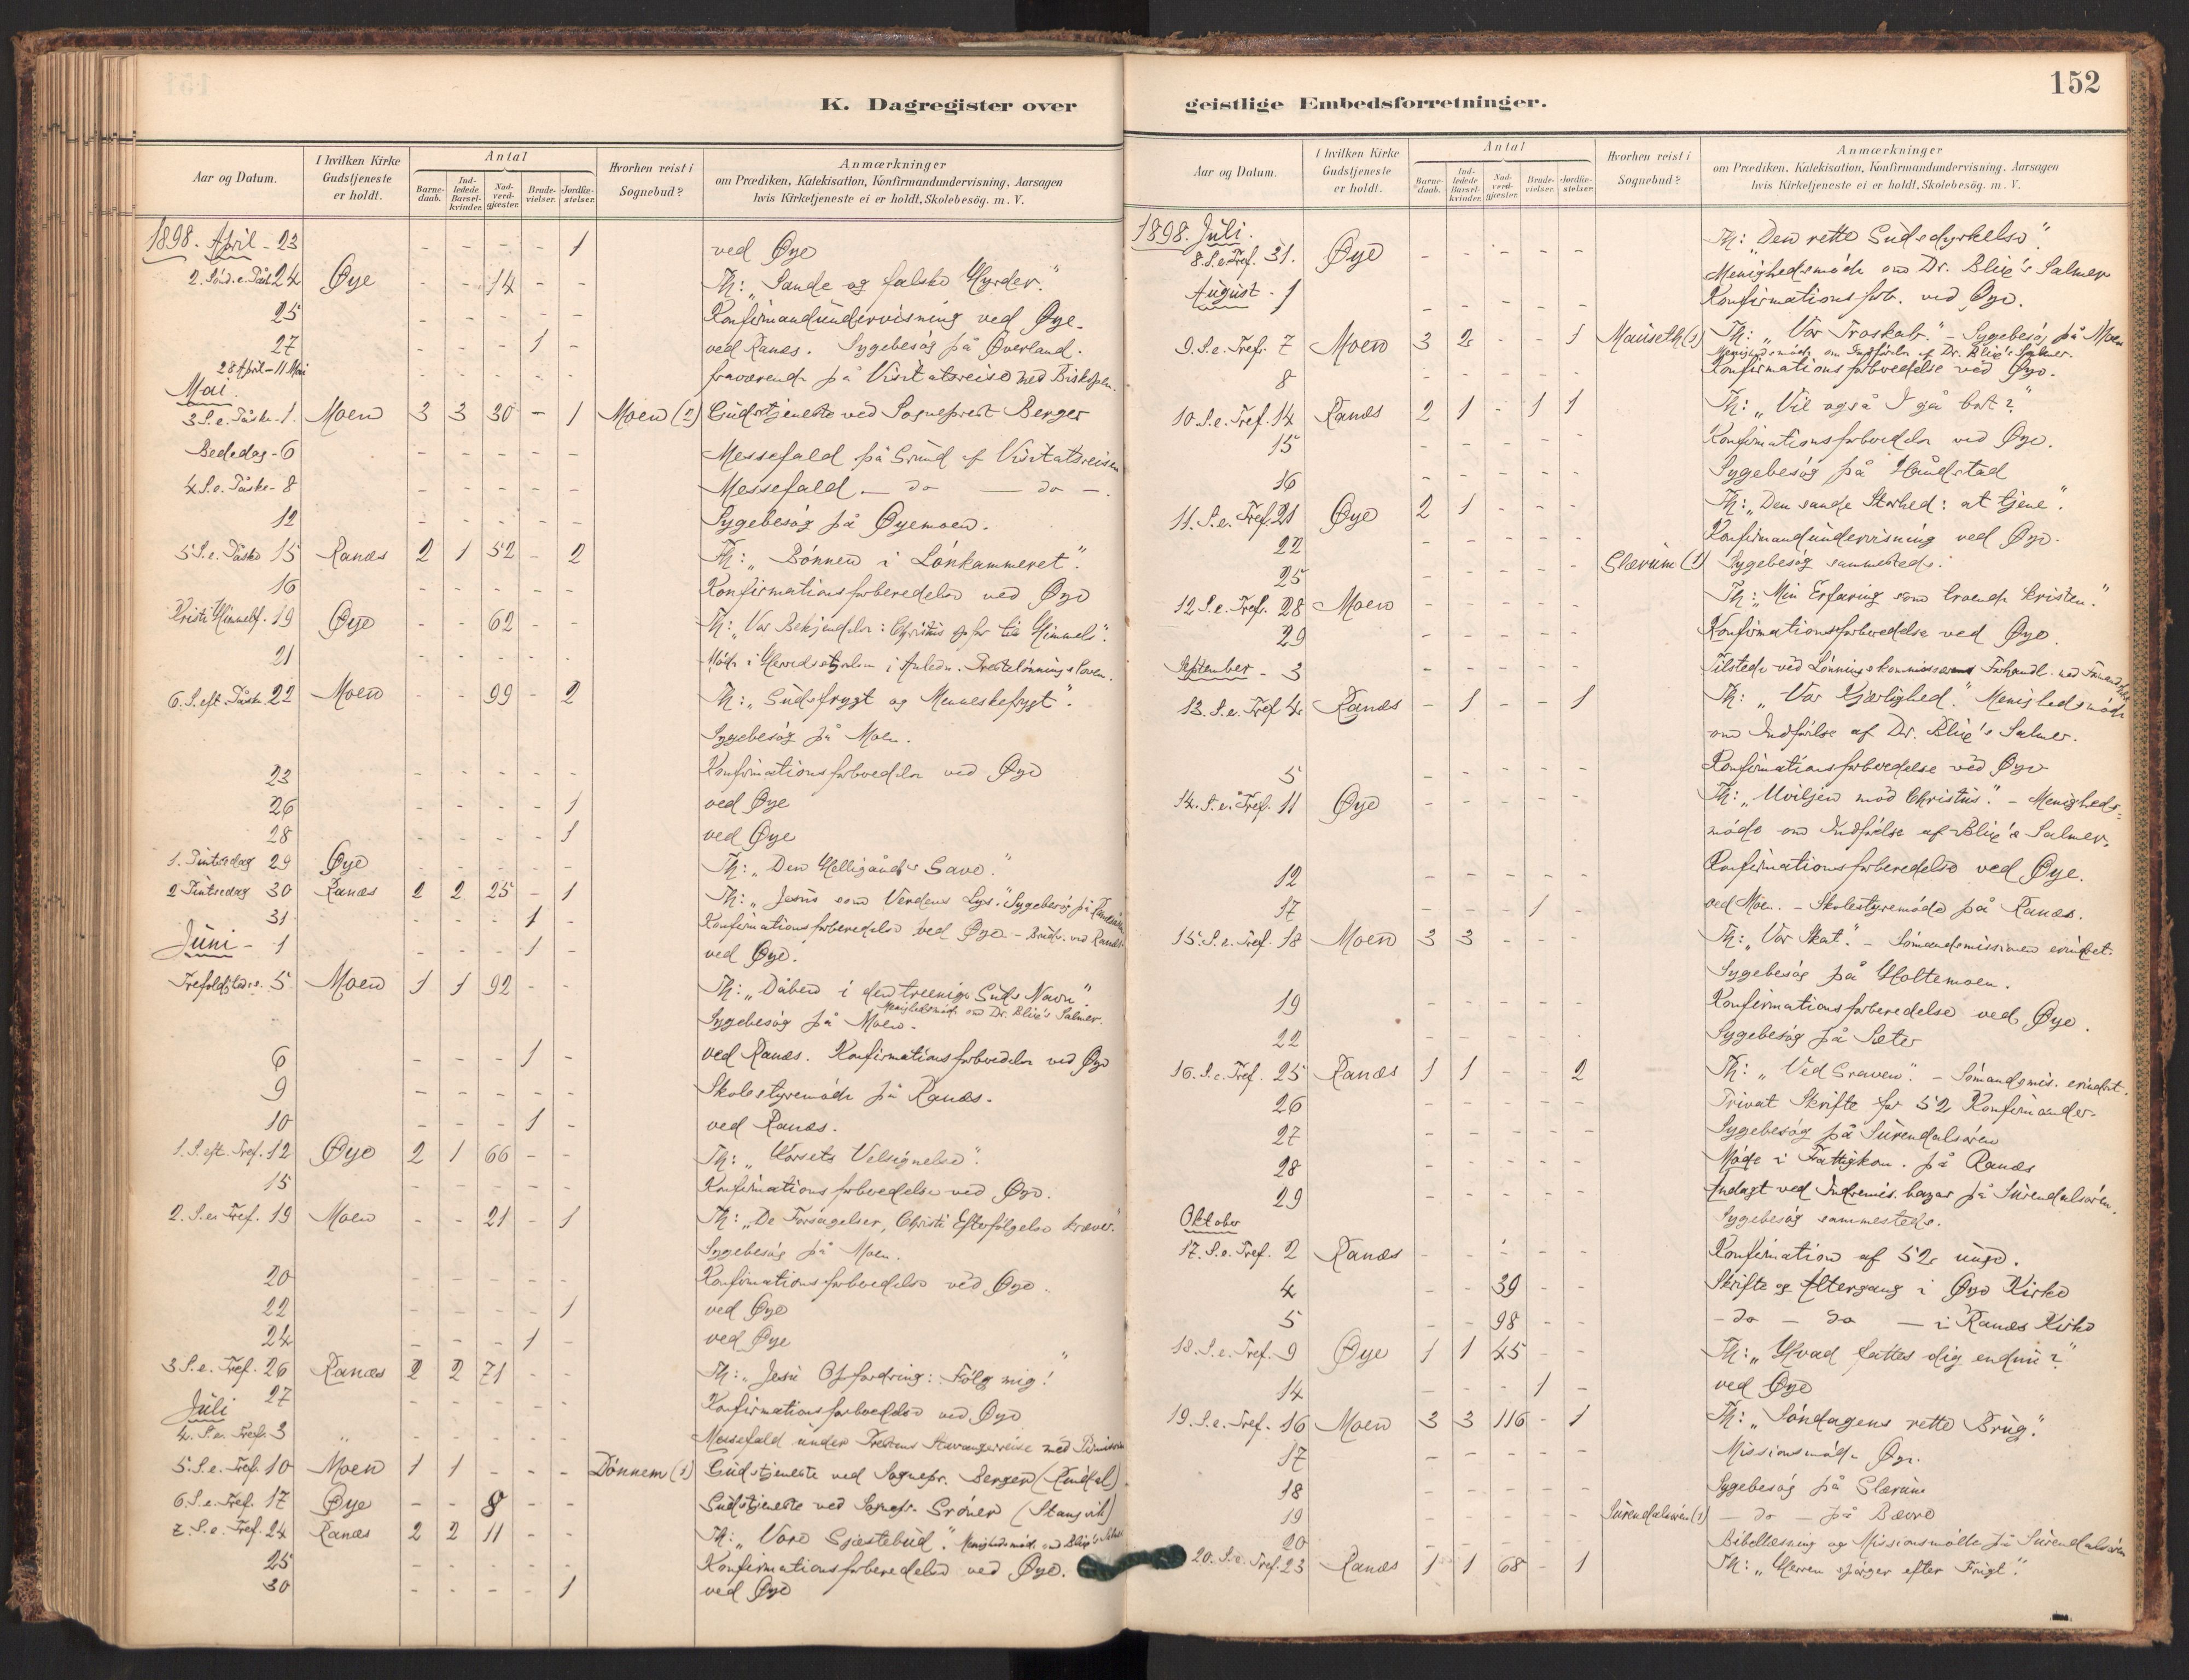 K. Dagregister over
Aar og Datum. I hvilken Kirke Gudstjeneste er holdt. Antal Barnedaab. Indledede Barselkvinder. Nadverdgjæster. Brudevielser. Jordfæstelser. Hvorhen reist i Sognebud? Anmærkninger om Prædiken, Katekisation, Konfirmandundervisning, Aarsagen hvis Kirketjeneste ei er holdt, Skolebesög. m. V.
1898. April - 23 - - - - 1 ved Øye
2. Sönd. e. Påsk. 24 Øye - - 14 - - Th: „Sande og falske Hyrder."
25 - - - - - Konfirmandundervisning ved Øye.
27 - - - 1 - ved Ranes. Sygebesög på Øverland.
28 April - 11 Mai - - - - - fraværende på Visitatsreise med Biskopen.
Mai
3 S. e. Påske - 1. Moen 3 3 30 - 1 Moen (2) Gudstjeneste ved Sogneprest Berger
Bededag - 6 - - - - - Messefald på Grund af Visitatsreisen
4 S. e. Påske - 8 - - - - - Messefald - do - do -.
12 - - - - - Sygebesög på Øyemoen.
5 S. e. Påske 15 Ranes 2 1 52 - 2 Th: „Bönnen i Lönkammeret".
16 - - - - - Konfirmationsforberedelse ved Øye
Kristi Himmelf. 19 Øye - - 62 - - Th: „Vor Bekjendelse: Christus opfor til Himmels".
21 - - - - - Möde i Herredsstyrelsen i Anledn. Prestelönnings Loven.
6. S. eft. Påske 22 Moen - - 99 - 2 Th: „Gudsfrygt og Menneskefrygt".
Sygebesög på Moen.
23 - - - - - Konfirmationsforberedelse ved Øye
26 - - - - 1 ved Øye
28 - - - - 1 ved Øye
1. Pintsedag 29 Øye - - - - - Th: „Den Helligånds Gave."
2 Pintsedag 30 Ranes 2 2 25 - 1 Th: „Jesus som Verdens Lys." Sygebesög på
31 - - - 1 - Konfirmationsforberedelse ved Øye - Brudv. ved Ranes
Juni - 1 - - - 1 - ved Øye.
Trefoldigheds. 5 Moen 1 1 92 - - Th: „Dåben i den treenige Guds Navn".
Menighedsmöde om Dr. Blix's Salmer.
Sygebesög på Moen.
6 - - - 1 - ved Ranes. Konfirmationsforberedelse ved Øye
9 - - - - - Skolestyremöde på Ranes.
10 - - - 1 - ved Ranes.
1. S. eft. Tref. 12 Øye 2 1 66 - - Th: „Korsets Velsignelse".
15 - - - - - Konfirmationsforberedelse ved Øye.
2. S. e. Tref. 19 Moen - - 21 - 1 Th: „De Forsagelser, Christi Efterfölgelse kræver."
Sygebesög på Moen.
20 - - - - - Konfirmationsforberedelse ved Øye.
22 - - - - 1 ved Øye
24 - - - 1 - ved Øye
3 S. e. Tref. 26 Ranes 2 2 71 - - Th: „Jesu Opfordring: Fölg mig!"
27 - - - - - Konfirmationsforberedelse ved Øye
Juli
4. S. e. Tref. 3 - - - - - Messefald under Prestens Stavangerreise med
5. S. e. Tref. 10 Moen 1 1 - - - Dönnem (1) Gudstjeneste ved Sognepr. Berger (Rindal)
6. S. e. Tref. 17 Øye - - 8 - - Gudstjeneste ved Sognepr. Gröner (Stangvik)
7. S. e. Tref. 24 Ranes 2 2 11 - - Th: „Vore Gjæstebud". Menighedsmöde om Blix's Salmer
25 - - - - - Konfirmationsforberedelse ved Øye.
30 - - - - 1 ved Øye
geistlige Embedsforretninger. 152
Aar og Datum. I hvilken Kirke Gudstjeneste er holdt. Antal Barnedaab. Indledede Barselkvinder. Nadverdgjæster. Brudevielser. Jordfæstelser. Hvorhen reist i Sognebud? Anmærkninger om Prædiken, Katekisation, Konfirmandundervisning, Aarsagen hvis Kirketjeneste ei er holdt, Skolebesög. m. V.
1898. Juli.
8. S. e. Tref. 31. Øye - - - - - Th: „Den rette Gudsdyrkelse".
Menighedsmöde om Dr. Blix's Salmer
August - 1 - - - - - Konfirmationsforb. ved Øye.
9. S. e. Tref. 7 Moen 3 2 - - 1 Mauseth (1) Th: „Vor Troskab." - Sygebesög på Moen
Menighedsmöde om Indförelse af Dr. Blix's Salmer.
8 - - - - - Konfirmationsforberedelse ved Øye.
10. S. e. Tref. 14 Ranes 2 1 - 1 1 Th: „Vil også I gå bort?"
15 - - - - - Konfirmationsforberedelse ved Øye.
16 - - - - - Sygebesög på Håndstad
11. S. e. Tref. 21 Øye 2 1 - - - Th: „Den sande Storhed: at tjene".
22 - - - - - Konfirmandundervisning ved Øye.
25 - - - - - Glærum (1) Sygebesög sammesteds.
12 S. e. Tref. 28 Moen - - - - - Th: „Min Erfaring som troende Kristen."
29 - - - - - Konfirmationsforberedelse ved Øye.
September - 3 - - - - - Tilstede ved Lönningskommissionens Forhandl. med
13. S. e. Tref 4 Ranes - 1 - - 1 Th: „Vor Kjærlighed." Menighedsmöde
om Indförelse af Dr. Blix's Salmer.
5 - - - - - Konfirmationsforberedelse ved Øye
14. S. e. Tref. 11 Øye - - - - - Th: „Uviljen mod Christus." - Menigheds-
möde om Indförelse af Blix's Salmer.
12 - - - - - Konfirmationsforberedelse ved Øye.
17 - - - 1 - ved Moen. - Skolestyremöde på Ranes.
15. S. e. Tref. 18 Moen 3 3 - - - Th: „Vor Skat." - Sömandsmissionen erindret.
Sygebesög på Holtemoen.
19 - - - - - Konfirmationsforberedelse ved Øye.
22 - - - - - Sygebesög på Sæter
16. S. e. Tref. 25 Ranes 1 1 - - 2 Th: „Ved Graven". - Sömandsmis. erindret.
26 - - - - - Privat Skrifte for 52 Konfirmander.
27 - - - - - Sygebesög på Surendalsören
28 - - - - - Möde i Fattigkom. på Ranes
29 - - - - - Andagt ved Indremis. bazar på Surendalsören.
Oktober Sygebesög sammesteds.
17. S. e. Tref. 2 Ranes - - - - - Konfirmation af 52 unge.
4 - - 39 - - Skrifte og Altergang i Øye Kirke
5 - - 98 - - - do - do - i Ranes Kirke
18. S. e. Tref. 9 Øye 1 1 45 - - Th: „Hvad fattes dig endnu?"
14 - - - 1 - ved Øye
19. S. e. Tref. 16 Moen 3 3 116 - 1 Th: „Söndagens rette Brug."
17 - - - - - Missionsmöde Øye.
18 - - - - - Sygebesög på Glærum
19 - - - - - Surendalsören (1) - do - på Bævre
20 - - - - - Bibellæsning og Missionsmöde på Surendalsören
20. S. e. Tref. 23 Ranes 1 1 68 - 1 Th: „Herren spörger efter Frugt".